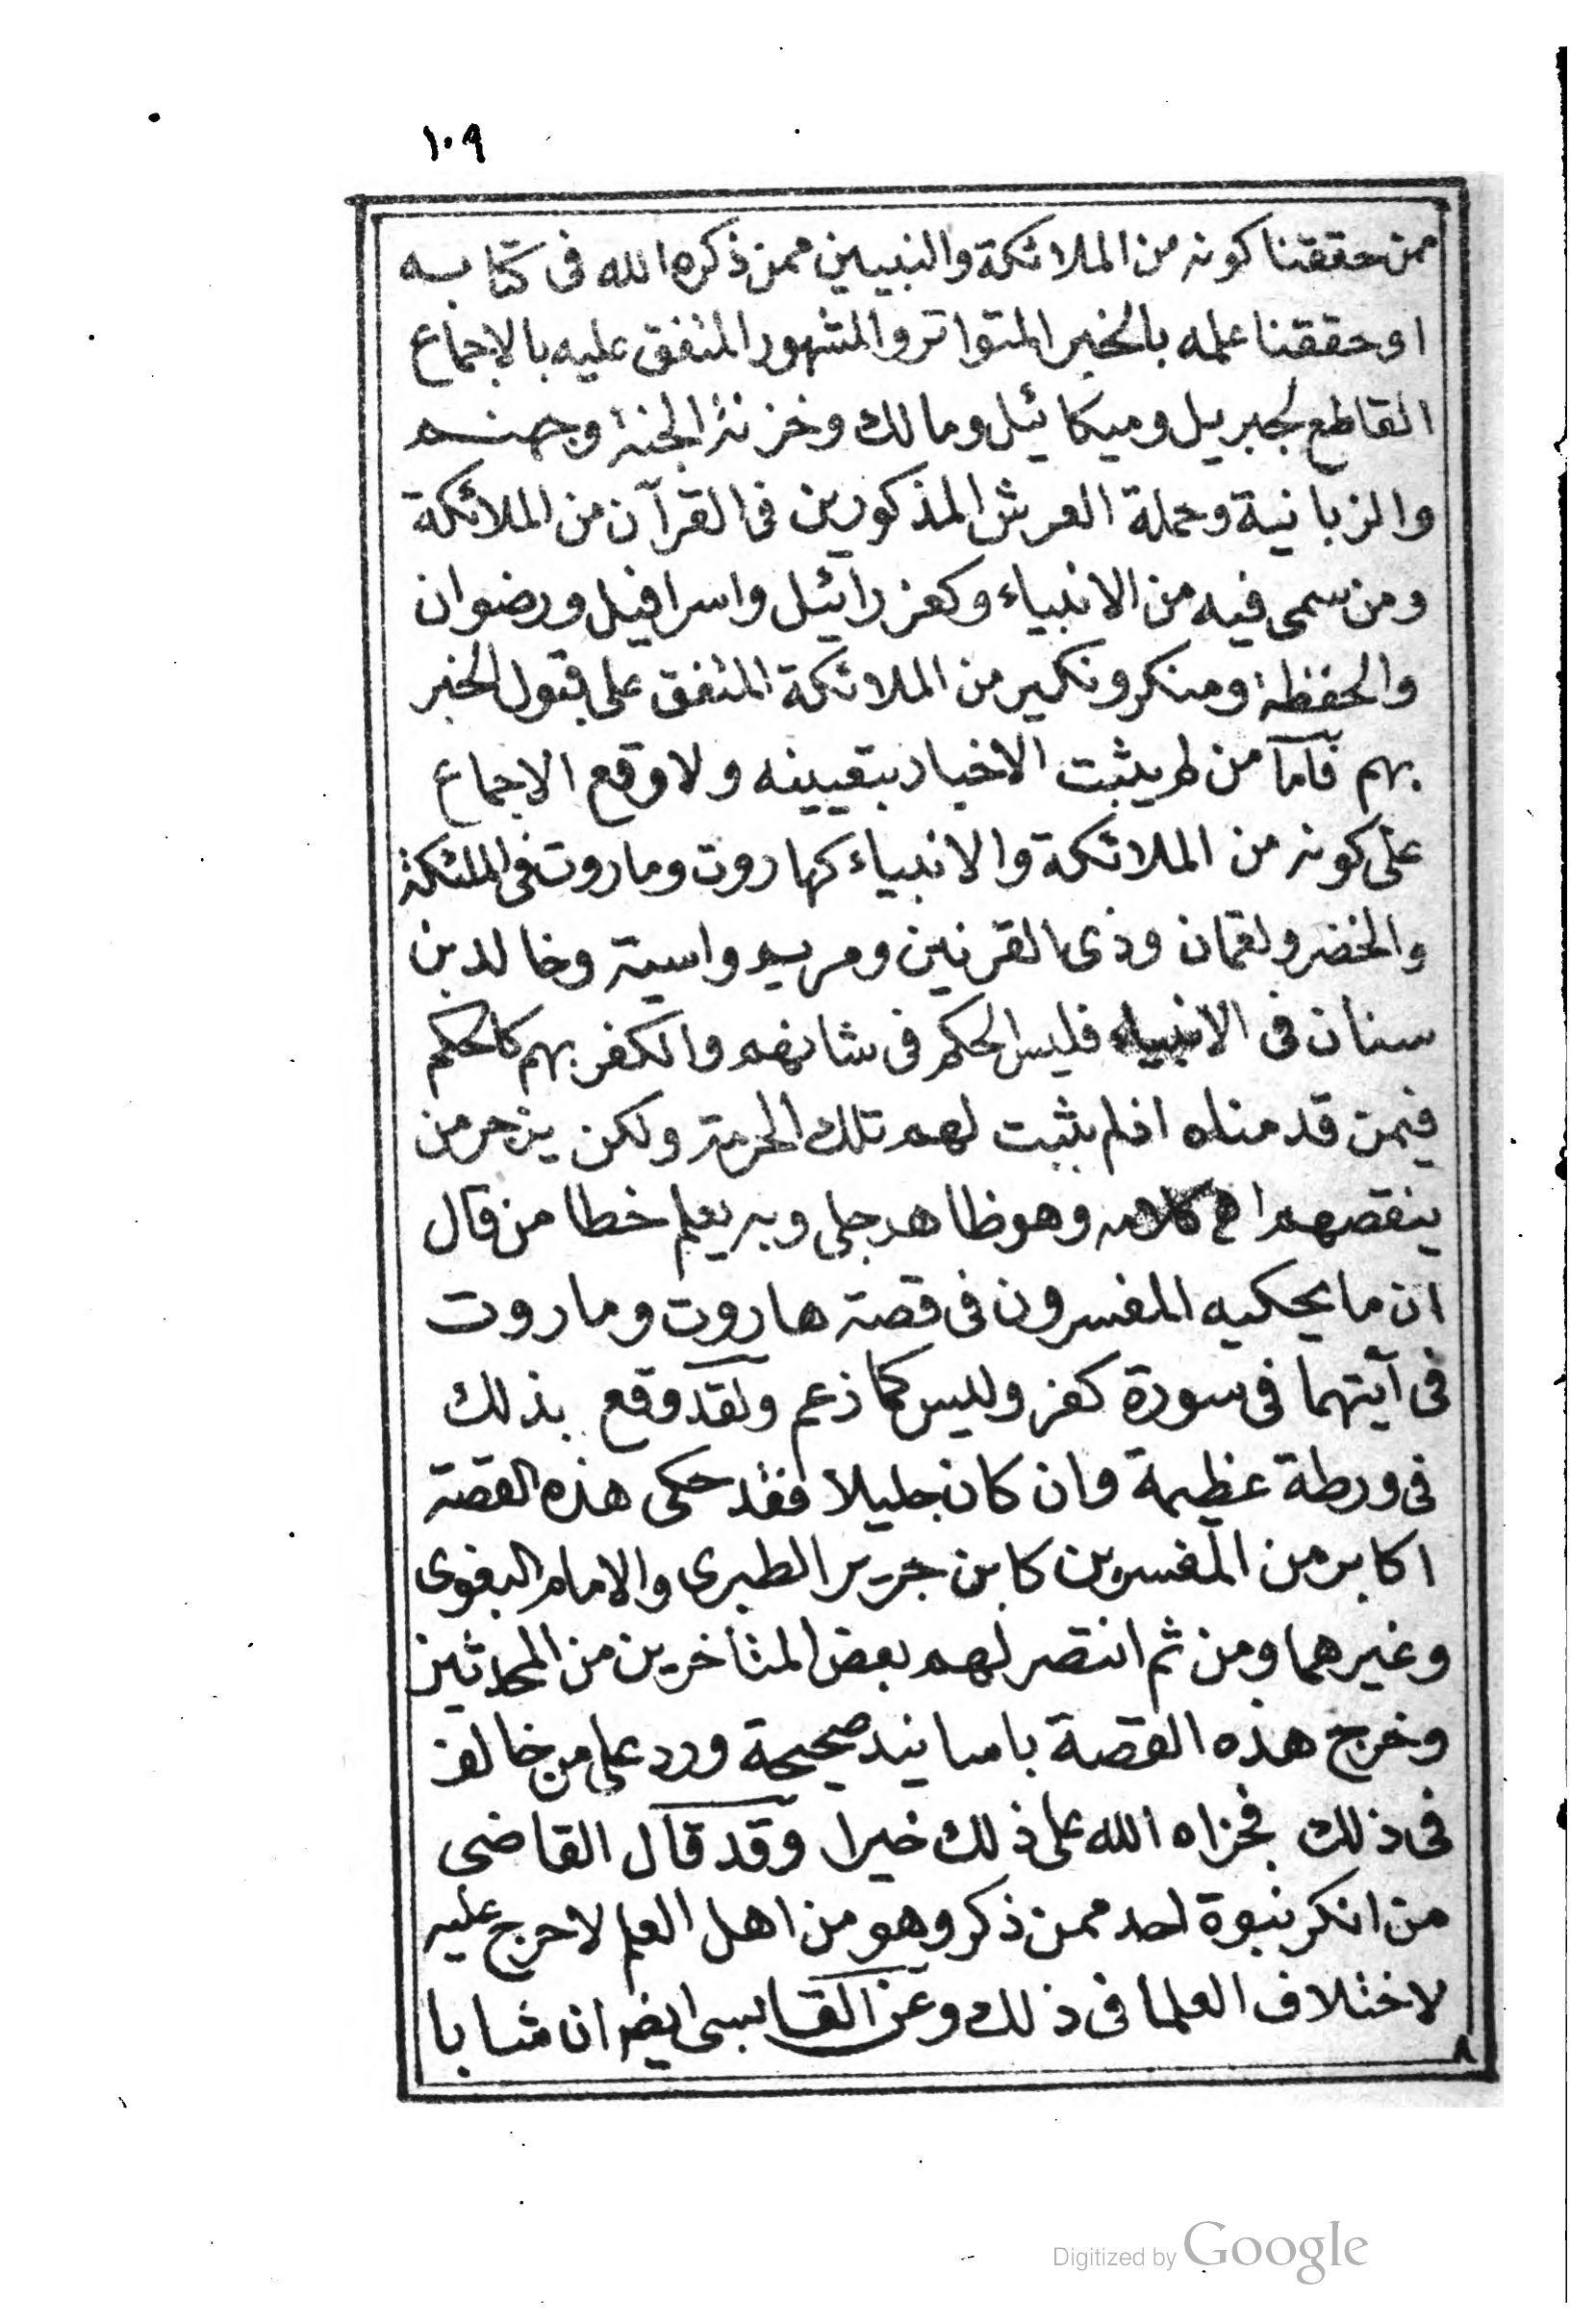 ١٠٩
ممن حققنا كونه من الملائكة والنبيين ممن ذكره الله فى كتابه
او حققنا علمه بالخبر المتواتر والمشهور المتفق عليه بالاجماع
القاطع كجبريل وميكائيل ومالك وخزنة الجنة وجهنم
والزبانية وحملة العرش المذكورين فى القرآن من الملائكة
ومن سمى فيه من الانبياء وكعزرائيل واسرافيل ورضوان
والحفظة ومنكر ونكير من الملائكة المتفق على قبول الخبر
بهم فاما من لم يثبت الاخبار بتعيينه ولا وقع الاجماع
على كونه من الملائكة والانبياء كهاروت وماروت فى الملئكة
والخضر ولقمان وذى القرنين ومريم واسية وخالد بن
سنان فى الانبياء فليس الحكم فى شانهم والكفر بهم كالحكم
فيمن قدمناه اذ لم يثبت لهم تلك الحرمة ولكن يزجر من
ينقصهم اه كلامه وهو ظاهر جلى وبه يعلم خطا من قال
ان ما يحكيه المفسرون فى قصة هاروت وماروت
فى آيتهما فى سورة كفر وليس كما زعم ولقد وقع بذلك
فى ورطة عظيمة وان كان جليلا فقد حكى هذه القصة
اكابر من المفسرين كابن جرير الطبرى والامام البغوى
وغيرهما ومن ثم انتصر لهم بعض المتأخرين من المحدثين
وخرج هذه القصة باسانيد صحيحة ورد على من خالف
فى ذلك فجزاه الله على ذلك خيرا وقد قال القاضى
من انكر نبوة احد ممن ذكر وهو من اهل العلم لا حرج عليه
لاختلاف العلما فى ذلك وعن القابسى ايضا ان شابا
٨
Digitized by Google